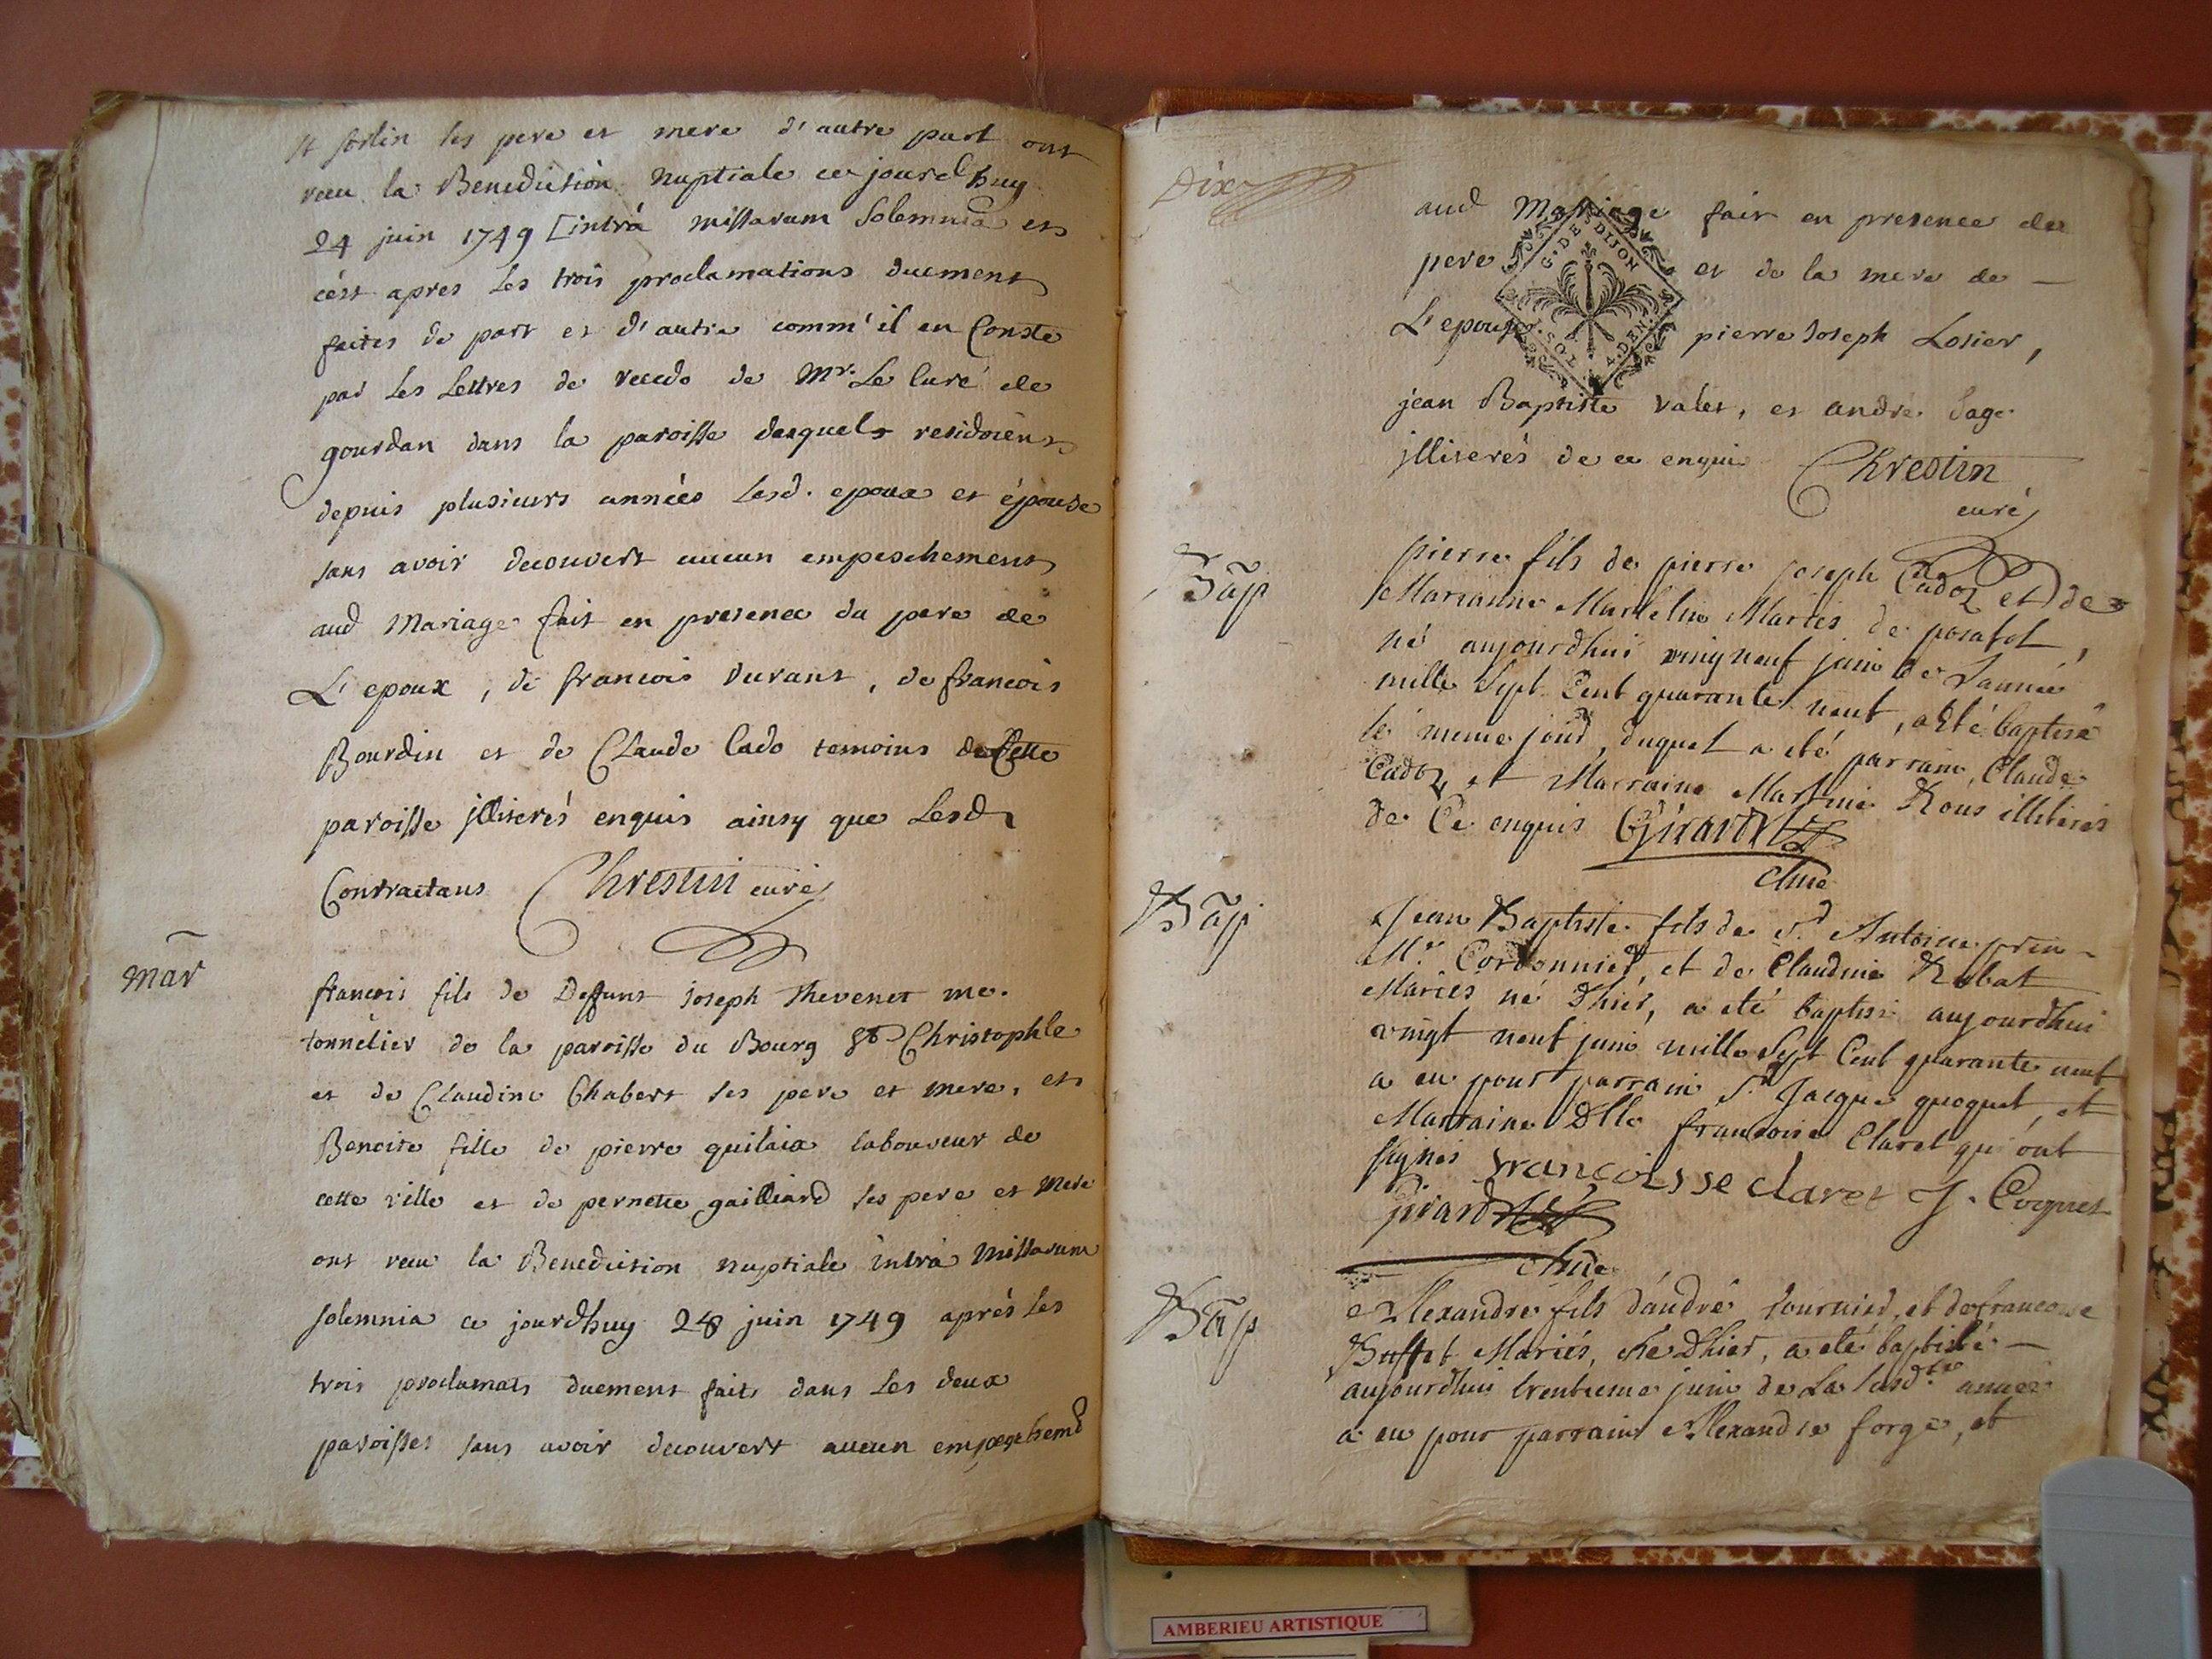 les pere et mere d'autre part ont
receu la Benediction nuptiale ce jourd'huy
24 juin 1749 intrà missarum solemnia et
c'est apres les trois proclamations duement
faites de part et d'autre comm'il en Conste
par les Lettres de recedo de Mr. Le Curé de
gourdan dans la paroisse desquels residoient
depuis plusieurs années lesd. epoux et épouse
sans avoir decouvert aucun empeschement
aud Mariage fait en presence du pere de
L'epoux, de francois durant, de francois
Bourdin et de Claude Cado temoins de Cette
paroisse jlliterés enquis ainsy que Lesd
Contractans Chrestin curé
mar
francois fils de Deffunt joseph Thevenet me.
tonnelier de la paroisse du Bourg St Christophle
et de Claudine Chabert ses pere et mere, et
Benoite fille de pierre guilaix laboureur de
cette ville et de pernette gailliard ses pere et mere
ont receu la Benediction nuptiale intrà missarum
solemnia ce jourdhuy 28 juin 1749 aprés les
trois proclamats duement faits dans les deux
paroisses sans avoir decouvert aucun empeschemt
Dix
aud Mariage fait en presence des
pere et de la mere de
L'epouse. pierre Joseph Losier,
G. DE DIJON
SOL
4. DEN.
jean Baptiste valet, et andré Sage
jlliterés de ce enquis Chrestin
curé
Bap
pierre fils de pierre joseph Cadoz et de
Marianne Martelin Mariés de posafol,
né aujourdhui vingneuf juin de L'année
mille Sept Cent quarante neuf, a été baptisé
le meme jour, duquel a eté parrain, Claude
Cadoz et Marraine Martine Rous illiterés
de Ce enquis Girard
Bap
Jean Baptiste fils de Sr Antoine prin
Mr. Cordonnier, et de Claudine Rabat
Mariés né Dhier, a eté baptisé aujourdhui
vingt neuf juin mille Sept Cent quarante neuf
a eu pour parrain Sr. Jacque quoquet, et
Marraine Dlle francoise Claret qui ont
signés francoisse claret J. Coquet
Girard
Bap
Alexandre fils d'andré tournier, et de francoise
Buffet Mariés, Né Dhier, a eté baptisé
aujourdhui trentieme juin de La susdte année
a eu pour parrain Alexandre forge, et
AMBERIEU ARTISTIQUE